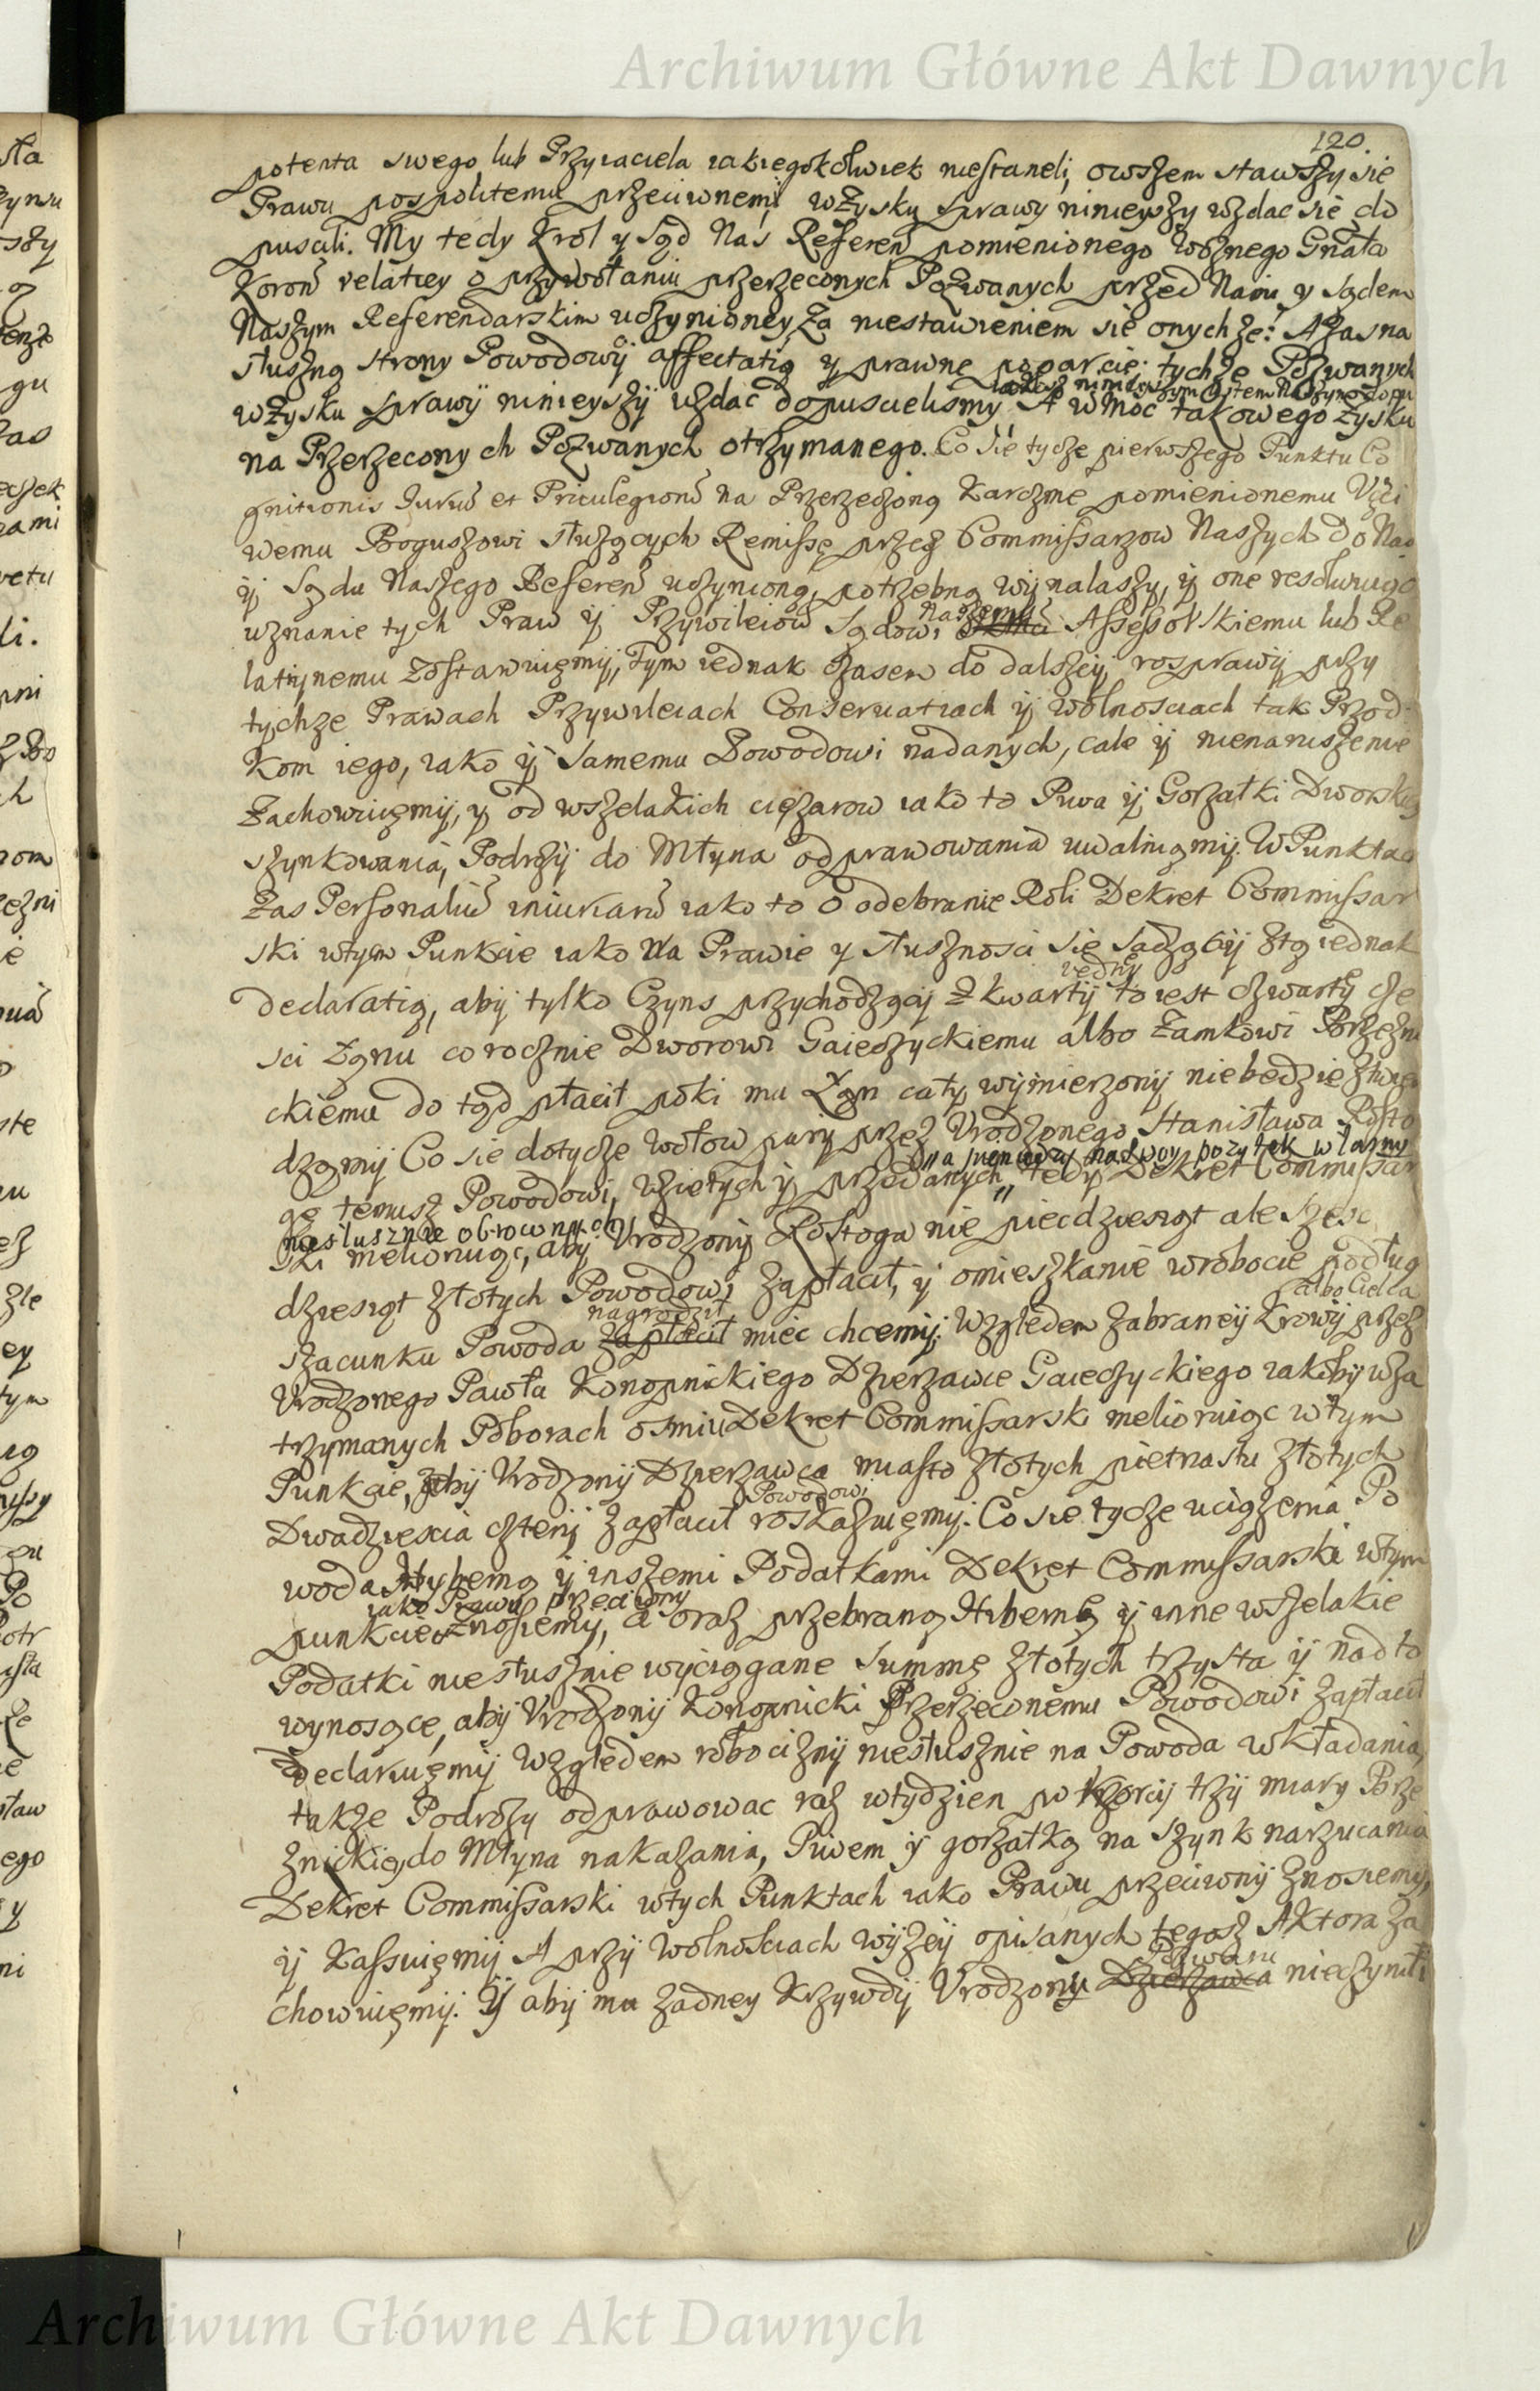 Archiwum Główne Akt Dawnych
120.
potenta swego lub Przyiaciela iakiegokolwiek niestaneli, owszem stawszy sie
Prawu pospolitemu przeciwnemi wzysku sprawy ninieyszy wzdac sie do
puscili. My tedy Krol y Sąd Nas Referen pomienionego Woznego Gnała
Koron relatiey o przywołaniu przerzeconych Pozwanych przed Nami y Sądem
Naszym Referendarskim uczynioney, za niestawieniem sie onychże: A za sna
słuszną strony Powodowy affectatią y prawne poparcie tychże Pozwanych
wzysku sprawy ninieyszy wzdac dopuscielismy A wmoc takowego zysku
na Przerzeconych Pozwanych otrzymanego. Co sie tycze pierwszego Punktu Co
gnitionis Iuriu et Priuilegioru na Przerzeczoną Karczmę pomienionemu Uczi
wemu Boguszowi służących Remissę przez Commissarzow Naszych do Nas
y Sądu Naszego Referen uczynioną, potrzebną wynalaszy, y one resolwuiąc
uznanie tych Praw y Przywileiow Sądowi Naszemu Assessorskiemu lub Re
latiynemu zostawuięmy, Tym iednak czasem do dalszey rosprawy przy
tychże Prawach Przywileiach Conseruatiach y wolnosciach tak Przod
kom iego, iako y samemu Powodowi nadanych, cale y nienaruszenie
Zachowuięmy, y od wszelakich ciężarow iako to Piwa y Gorzałki Dworskiey
szynkowania, Podrozy do Młyna odprawowania uwalniąmy. W Punktac
Zas Personaliu iniuriaru iako to o odebranie Roli Dekret Commissar
ski wtym Punkcie iako Na Prawie y słusznosci sie sadzący ztą iednak
declaratią, aby tylko Czyns przychodzący z kwarty iedny to iest czwarty cze
sci Łąnu corocznie Dworowi Gaieczyckiemu albo Zamkowi Brzezni
ckiemu do tąd płacił poki mu Łąn cały wymierzony niebędzie
dzamy Co sie dotycze wołow pary przez Urodzonego Stanisława Rosto
gę temusz Powodowi, wziętych y przedanych, tedy Dekret Commissar
na pieniądzy naswoy pozytek własny
niesłusznie obrocnych
ski melioruiąc, aby Urodzony Rostoga nie piecdziesiąt ale szesc
dziesiąt złotych Powodowi zapłacił, y omieszkanie wrobocie podług
szacunku Powoda nagrodził zapłacił miec chcemy. Względem zabraney Krowy albo Cielca przez
Urodzonego Pawła Konopnickiego Dzierzawce Gaieczyckiego iakoby wza
trzymanych Poborach osmiu Dekret Commissarski melioruiąc wtym
Punkcie, żeby Urodzony Dzierzawca miasto złotych pietnastu złotych
Dwadziescia cztery zapłacił Powodowi roskazuięmy. Co sie tycze uciązenia Po
woda Hyberną y inszemi Podatkami Dekret Commissarski wtym
punkcie iako Prawu przeciwny znosiemy, a oraz przebraną Hibernę y inne wszelakie
Podatki niesłusznie wyciągane Summę złotych trzysta y nadto
wynosącę, aby Urodzony Konopnicki Przerzeconemu Powodowi zapłacił
Declaruięmy Względem robocizny niesłusznie na Powoda wkładania,
także Podrozy odprawowac raz wtydzien po trzy miary Brze
znickię, do Młyna nakazania, Piwem y gorzałką na szynk narzucania
Dekret Commissarski wtych Punktach iako Prawu przeciwny znosiemy,
y Kassuięmy A przy wolnosciach wyzey opisanych tegosz Aktora za
chowuięmy. Y aby mu zadney Krzywdy Urodzony Dzierzawca Pozwani nieczynili
Archiwum Główne Akt Dawnych